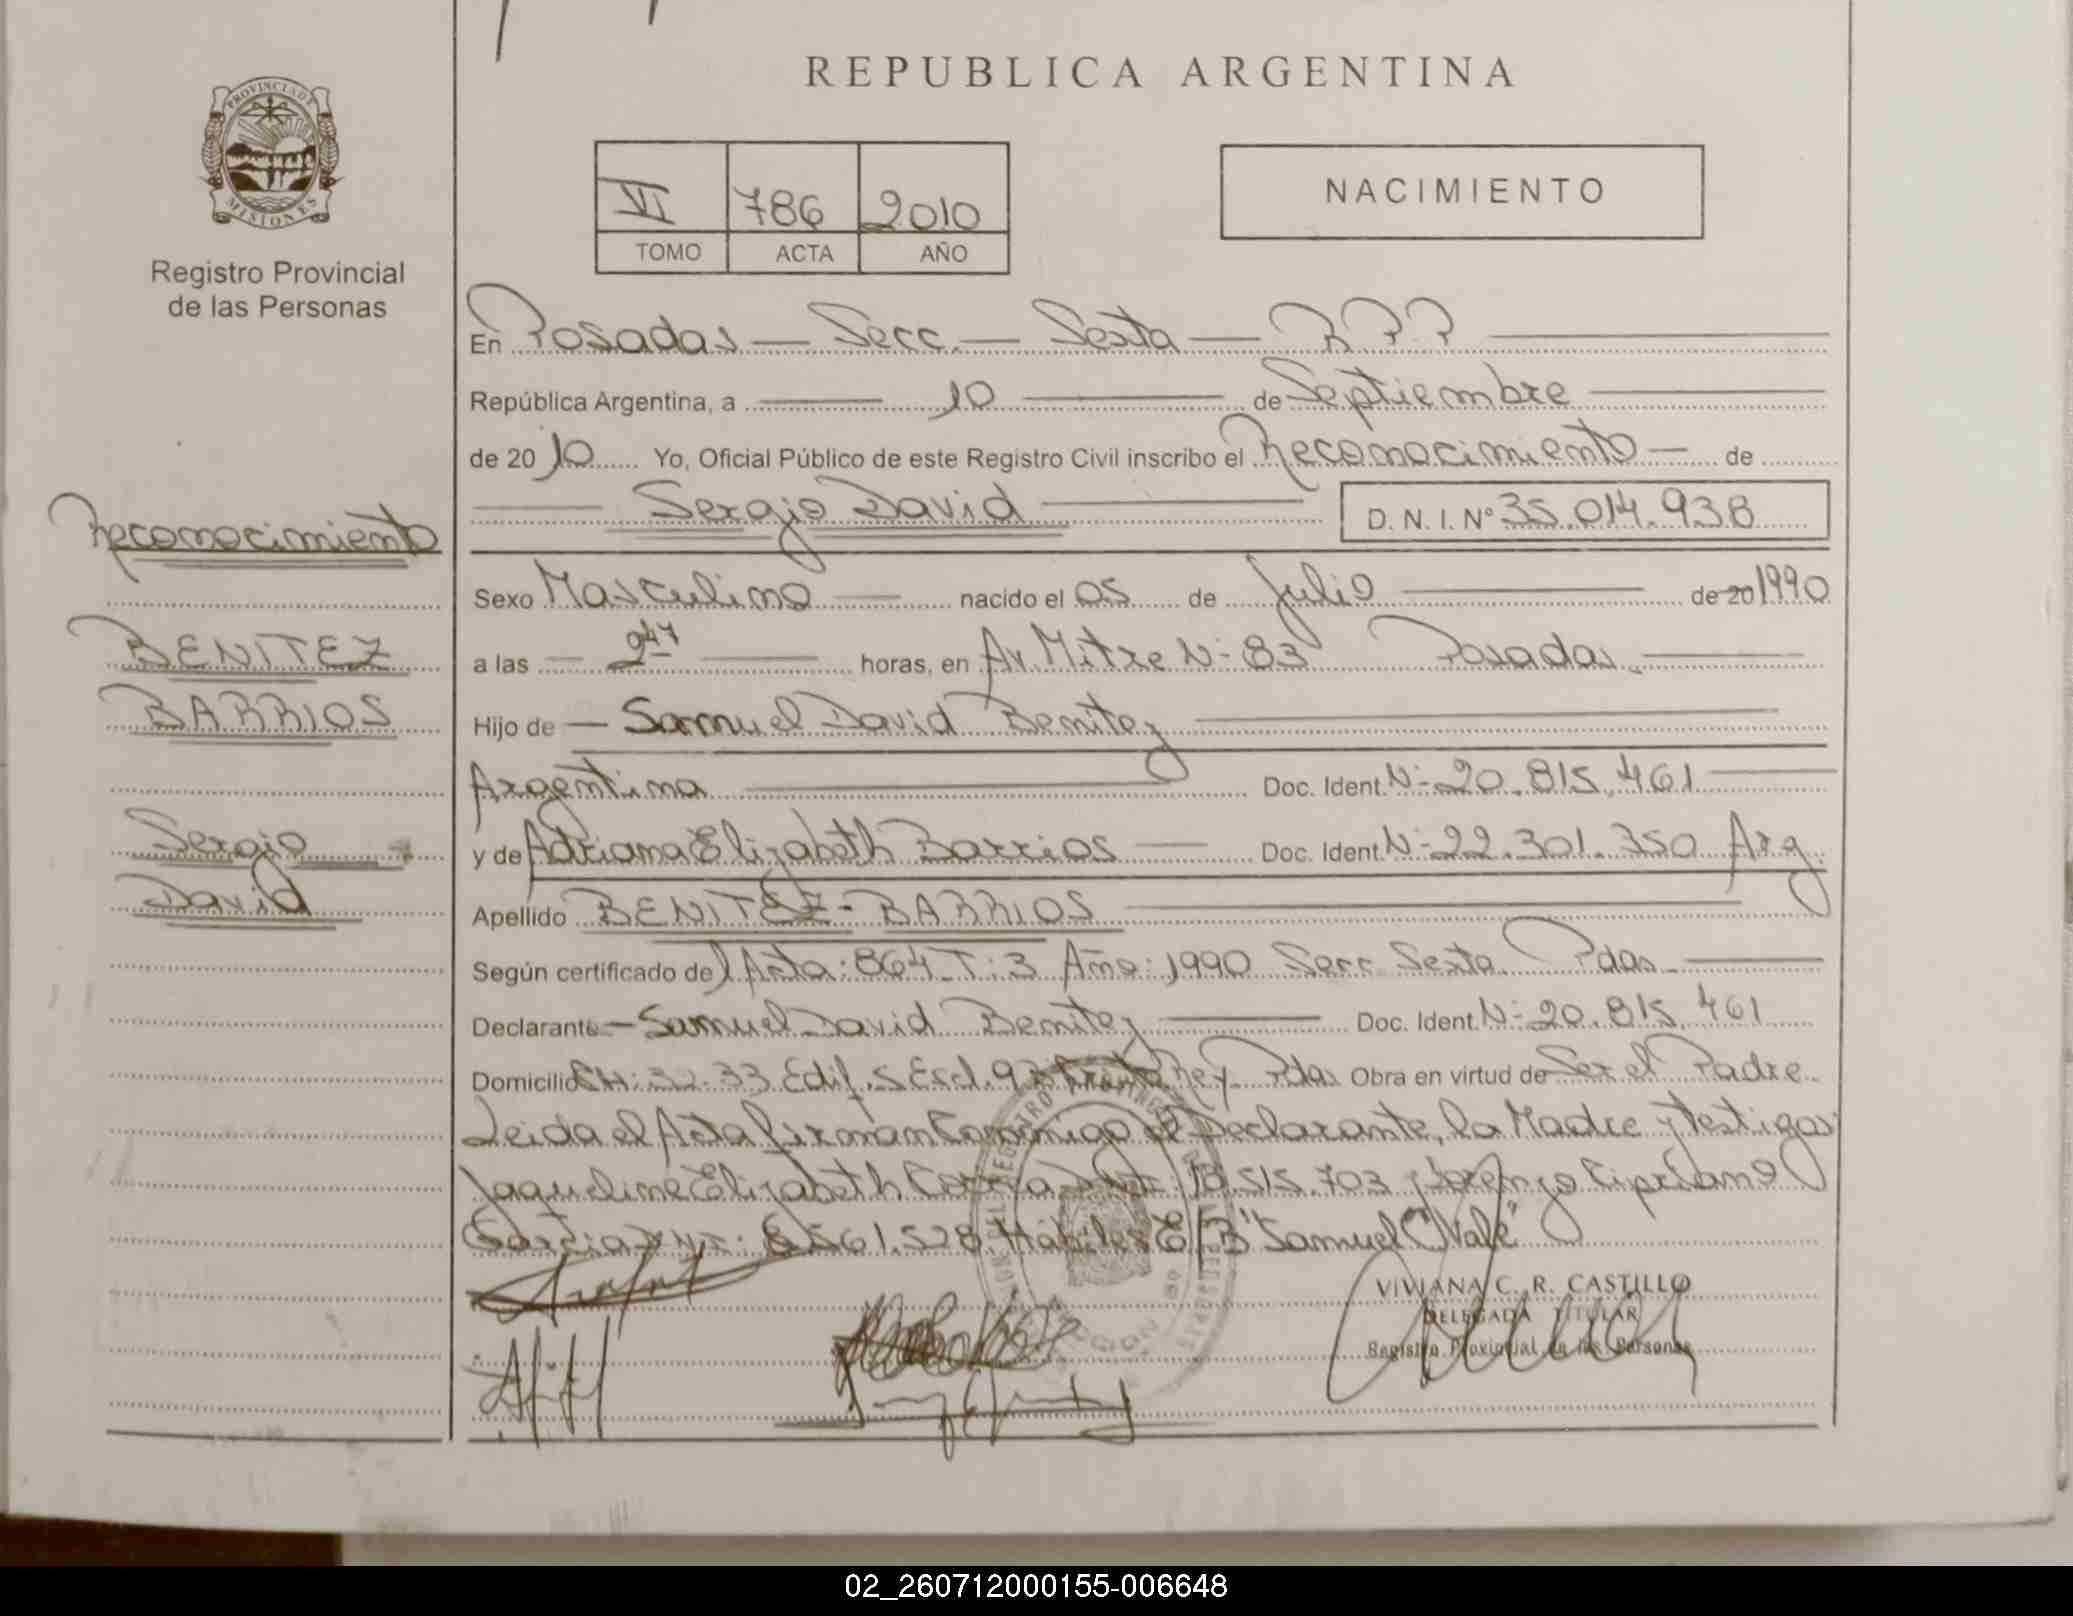 REPUBLICA ARGENTINA
PROVINCIA DE
MISIONES
Registro Provincial
de las Personas
VI 786 2010
TOMO ACTA AÑO
NACIMIENTO
En Posadas — Secc. — Sexta — R.P.P
República Argentina, a 10 de Septiembre
de 2010 Yo, Oficial Público de este Registro Civil inscribo el Reconocimiento de
Sergio David D.N.I. Nº 35.014.938
Sexo Masculino nacido el 05 de Julio de 20 1990
a las 9 47 horas, en Av. Mitre Nº 83 Posadas
Hijo de Samuel David Benitez
Argentina Doc. Ident. Nº 20.815.461
y de Adriana Elizabeth Barrios Doc. Ident. Nº 22.301.350 Arg.
Apellido BENITEZ - BARRIOS
Según certificado del Acta: 864 T: 3 Año: 1990 Secc. Sexta Pdas
Declarante Samuel David Benitez Doc. Ident. Nº 20.815.461
Domicilio CH: 32-33 Edif. 5 Escl. 9 Pdas Obra en virtud de Ser el Padre
Leida el Acta firman Conmigo el Declarante, la Madre y testigos
Jaqueline Elizabeth 18.515.703 y Lorenzo Cipriano
Garcia 561.528 Habiles E/B "Samuel" "Vale"
VIVIANA C. R. CASTILLO
DELEGADA TITULAR
Registro Provincial de las Personas
Reconocimiento
BENITEZ
BARRIOS
Sergio
David
02_260712000155-006648